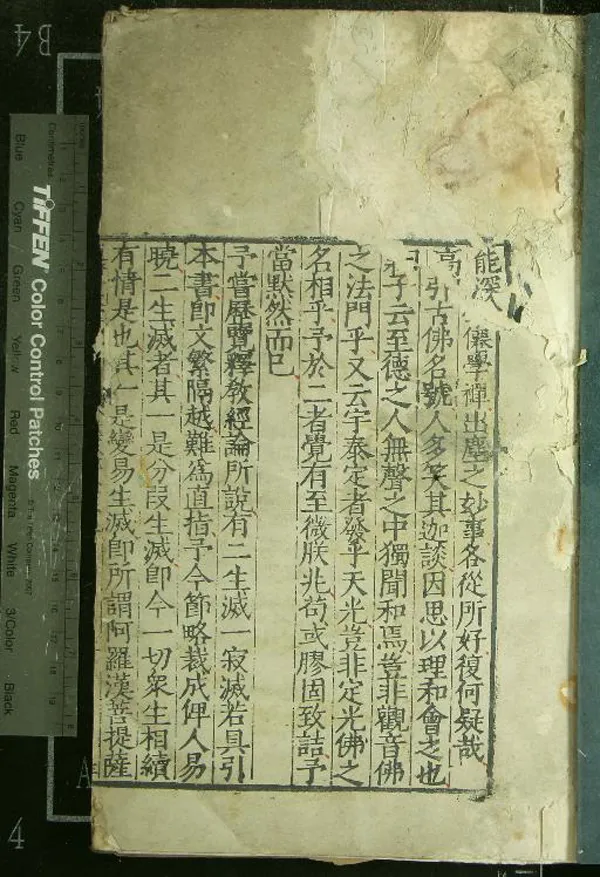 能深 儼學禪出塵之妙事各從所好復何疑哉
引古佛名號人多笑其迦談因思以理和會之也
子云至德之人無聲之中獨聞和焉豈非觀音佛
之法門乎又云宇泰定者發乎天光豈非定光佛之
名相乎予於二者覺有至微朕兆苟或膠固致詰予
當默然而已
予嘗歷覽釋教經論所說有二生滅一寂滅若具引
本書即文繁隔越難為直指予今節略裁成俾人易
曉二生滅者其一是分段生滅即今一切眾生相續
有情是也其一是變易生滅即所謂阿羅漢菩提薩
B4
A
4
TIFFEN Color Control Patches
Centimetres
Blue Cyan Green Yellow Red Magenta White 3/Color Black